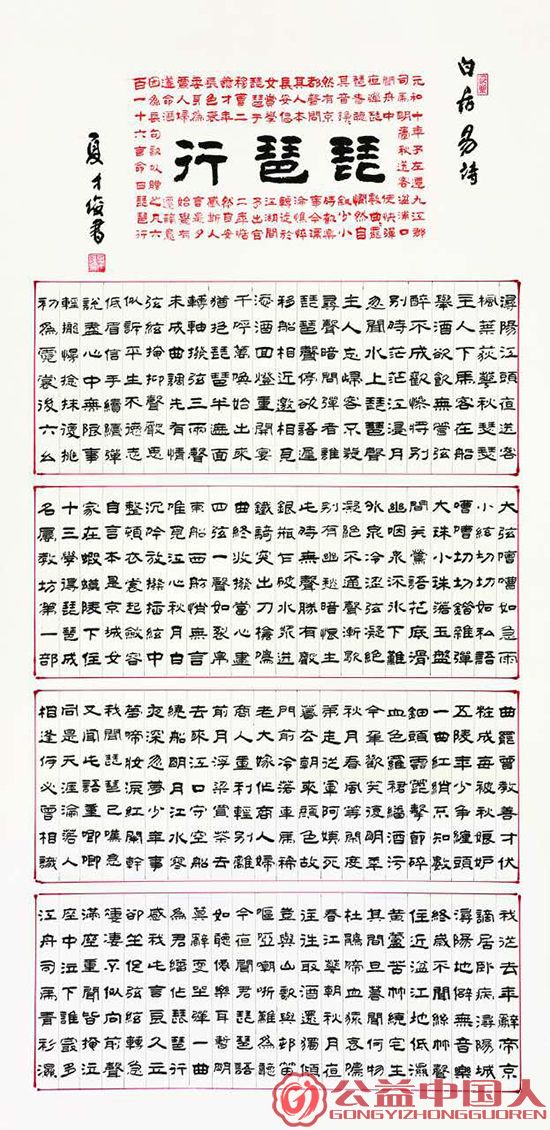 白居易詩
元和十年予左遷九江郡
司馬明年秋送客湓浦口
聞舟中
夜彈琵
琶者聽
其音錚
然有京
都聲問
其人本
長安倡
女嘗學
琵琶于
穆曹二
善才年
長色衰
委身為
賈人婦
遂命酒
使快彈
數曲曲罷
憫然自
敘少小
時歡樂
事今漂
淪憔悴
轉徙於
江湖間
予出官
二年恬
然自安
感斯人
言是夕
始覺有
遷謫意
因為長句歌以贈之凡六
百一十六言命曰琵琶行
琵琶行
夏才俊書
潯陽江頭夜送客
楓葉荻華秋瑟瑟
主人下馬客在船
舉酒欲飲無管弦
醉不成歡慘將別
別時茫茫江浸月
忽聞水上琵琶聲
主人忘歸客不發
尋聲暗問彈者誰
琵琶聲停欲語遲
移船相近邀相見
添酒回燈重開宴
千呼萬喚始出來
猶抱琵琶半遮面
轉軸撥弦三兩聲
未成曲調先有情
弦弦掩抑聲聲思
似訴平生不得志
低眉信手續續彈
說盡心中無限事
輕攏慢撚抹復挑
初為霓裳後六幺
大弦嘈嘈如急雨
小弦切切如私語
嘈嘈切切錯雜彈
大珠小珠落玉盤
間關鶯語花底滑
幽咽泉流冰下難
冰泉冷澀弦凝絕
凝絕不通聲漸歇
別有幽愁暗恨生
此時無聲勝有聲
銀瓶乍破水漿迸
鐵騎突出刀槍鳴
曲終收撥當心畫
四弦一聲如裂帛
東船西舫悄無言
唯見江心秋月白
沉吟放撥插弦中
整頓衣裳起斂容
自言本是京城女
家在蝦蟆陵下住
十三學得琵琶成
名屬教坊第一部
曲罷曾教善才伏
粧成每被秋娘妒
五陵年少爭纏頭
一曲紅綃不知數
鈿頭雲篦擊節碎
血色羅裙翻酒污
今年歡笑復明年
秋月春風等閒度
弟走從軍阿姨死
暮去朝來顏色故
門前冷落車馬稀
老大嫁作商人婦
商人重利輕別離
前月浮梁買茶去
去來江口守空船
繞船明月江水寒
夜深忽夢少年事
夢啼妝淚紅闌干
我聞琵琶已嘆息
又聞此語重唧唧
同是天涯淪落人
相逢何必曾相識
我從去年辭帝京
謫居臥病潯陽城
潯陽地僻無音樂
終歲不聞絲竹聲
住近湓江地低濕
黃蘆苦竹繞宅生
其間旦暮聞何物
杜鵑啼血猿哀鳴
春江花朝秋月夜
往往取酒還獨傾
豈無山歌與村笛
嘔啞嘲哳難為聽
今夜聞君琵琶語
如聽仙樂耳暫明
莫辭更坐彈一曲
為君翻作琵琶行
感我此言良久立
卻坐促弦弦轉急
淒淒不似向前聲
滿座重聞皆掩泣
座中泣下誰最多
江州司馬青衫濕
公益中国人
GONGYIZHONGGUOREN